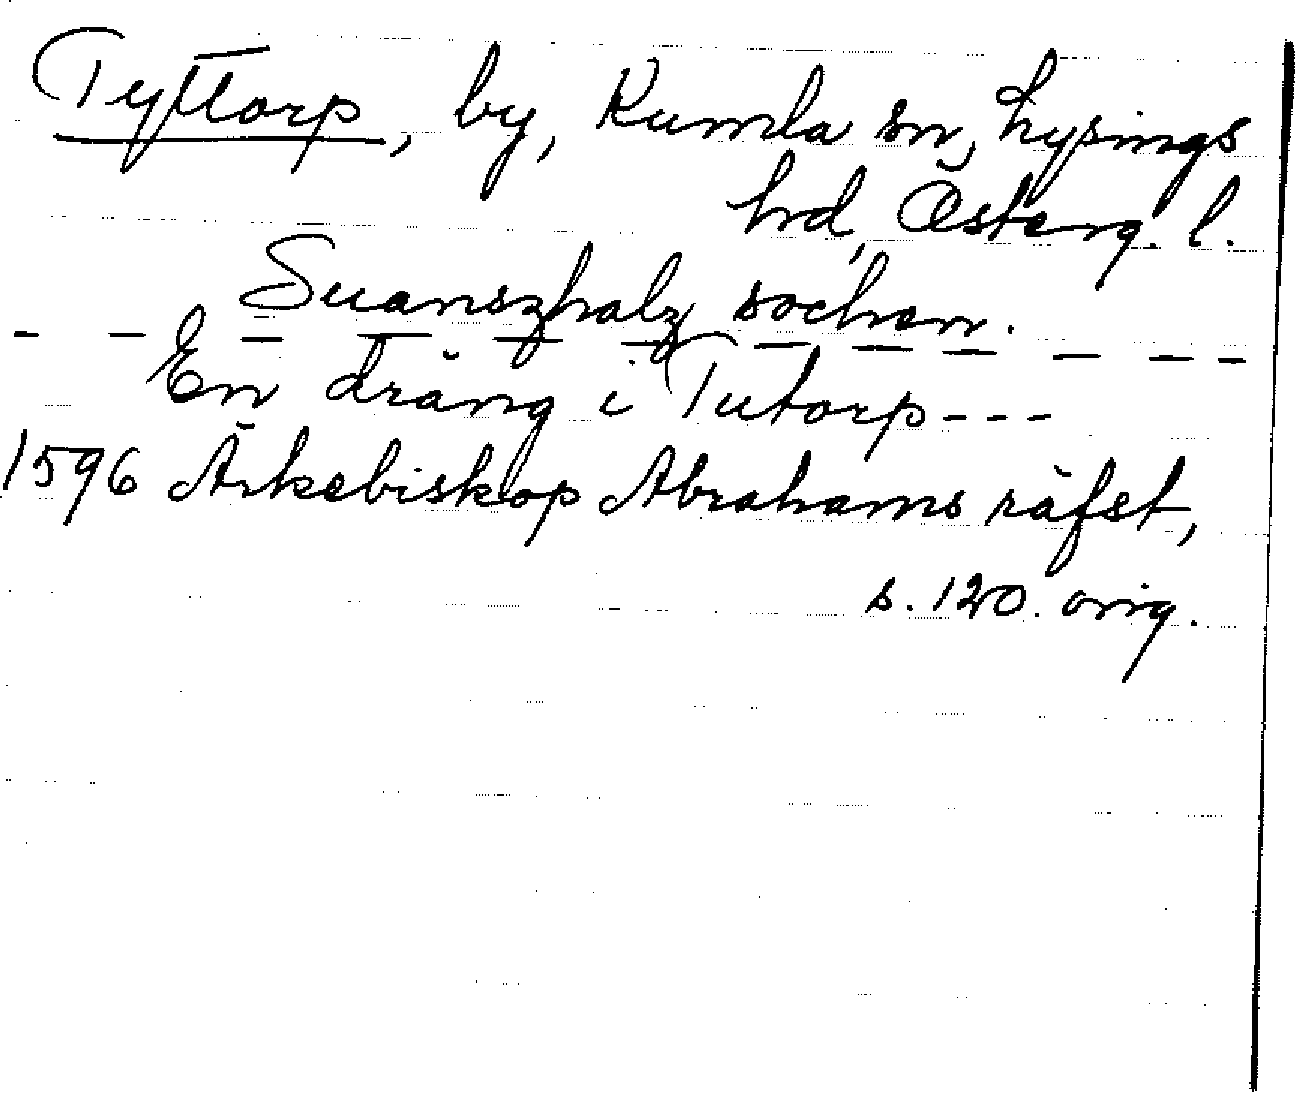 Tyttorp, by, Kumla sn, Lysings
hrd, Österg. l.
Suanszhalz sochen.
- - - - - - - - - - - -
En dräng i Tutorp---
1596 Ärkebiskop Abrahams räfst,
s. 120. orig.